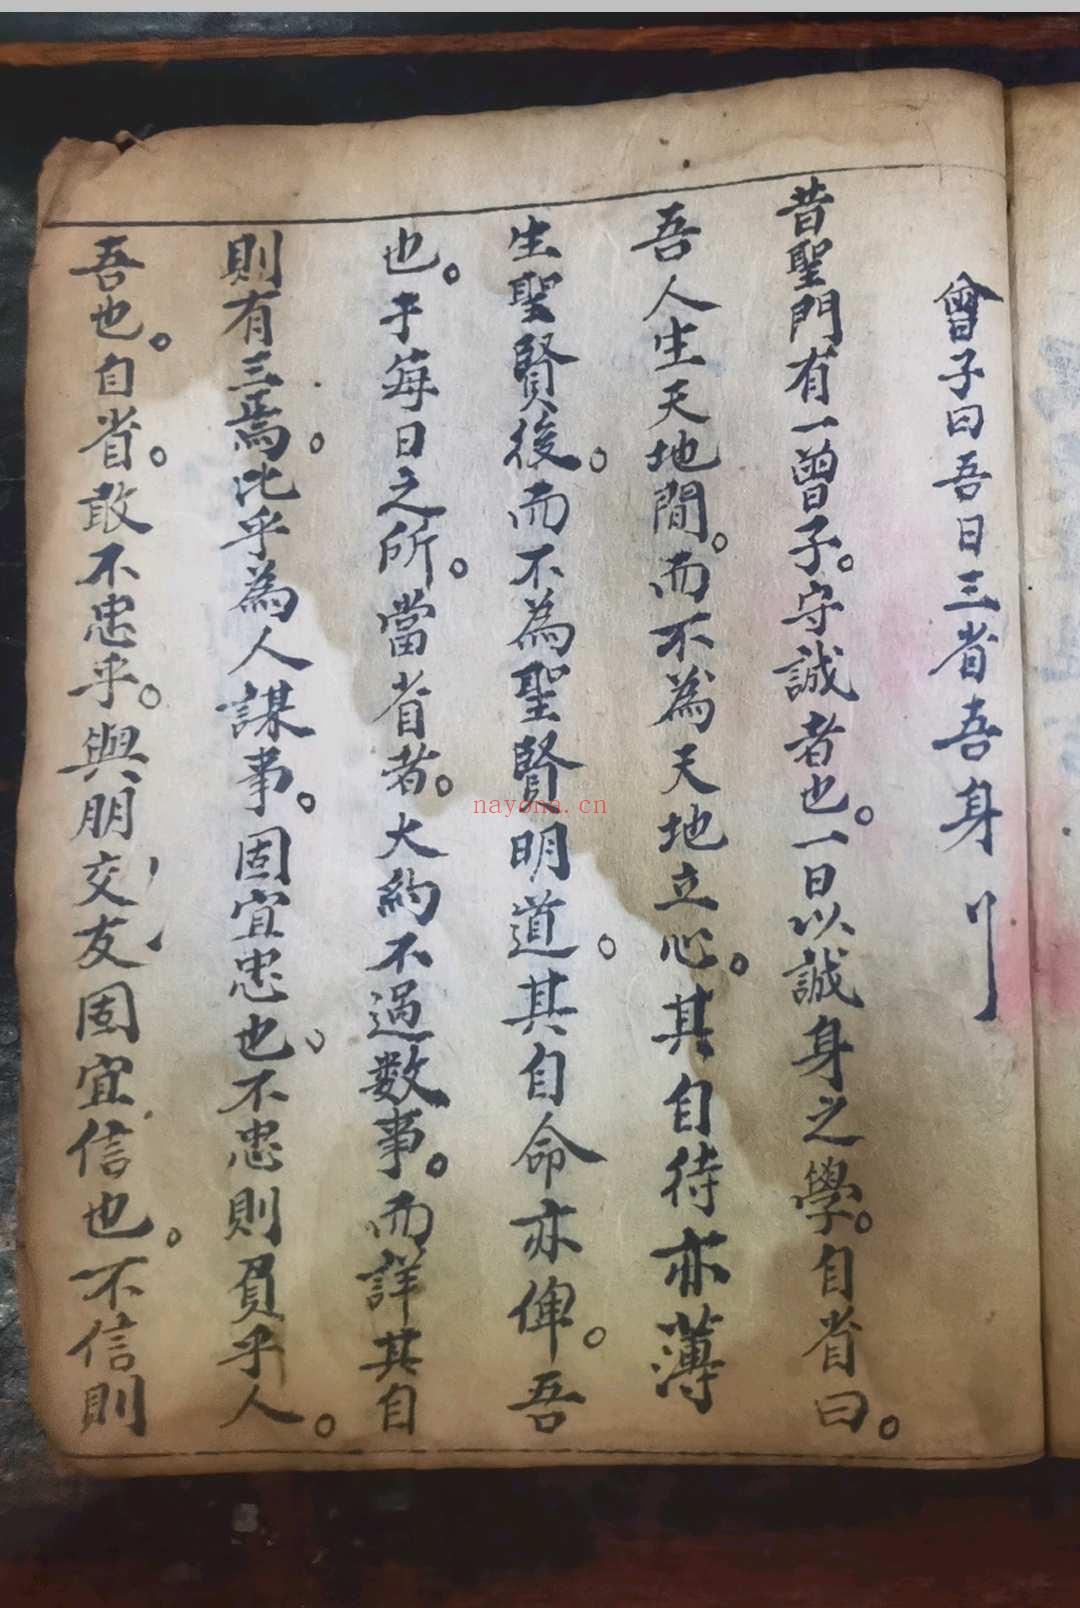 曾子曰吾日三省吾身
昔聖門有一曾子。守誠者也。一日以誠身之學。自省曰。
吾人生天地間。而不為天地立心。其自待亦薄
生聖賢後。而不為聖賢明道。其自命亦俾。吾
也。于每日之所。當省者。大約不過數事。而詳其自
則有三焉。比乎為人謀事。固宜忠也。不忠則負乎人。
吾也。自省。敢不忠乎。與朋交友固宜信也。不信則
nayona.cn